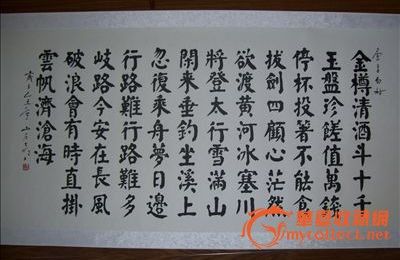 金樽清酒斗十千
玉盤珍饈值萬錢
停杯投箸不能食
拔劍四顧心茫然
欲渡黃河冰塞川
將登太行雪滿山
閑來垂釣坐溪上
忽復乘舟夢日邊
行路難行路難多
歧路今安在長風
破浪會有時直掛
雲帆濟滄海
華夏收藏網
mycollect.net